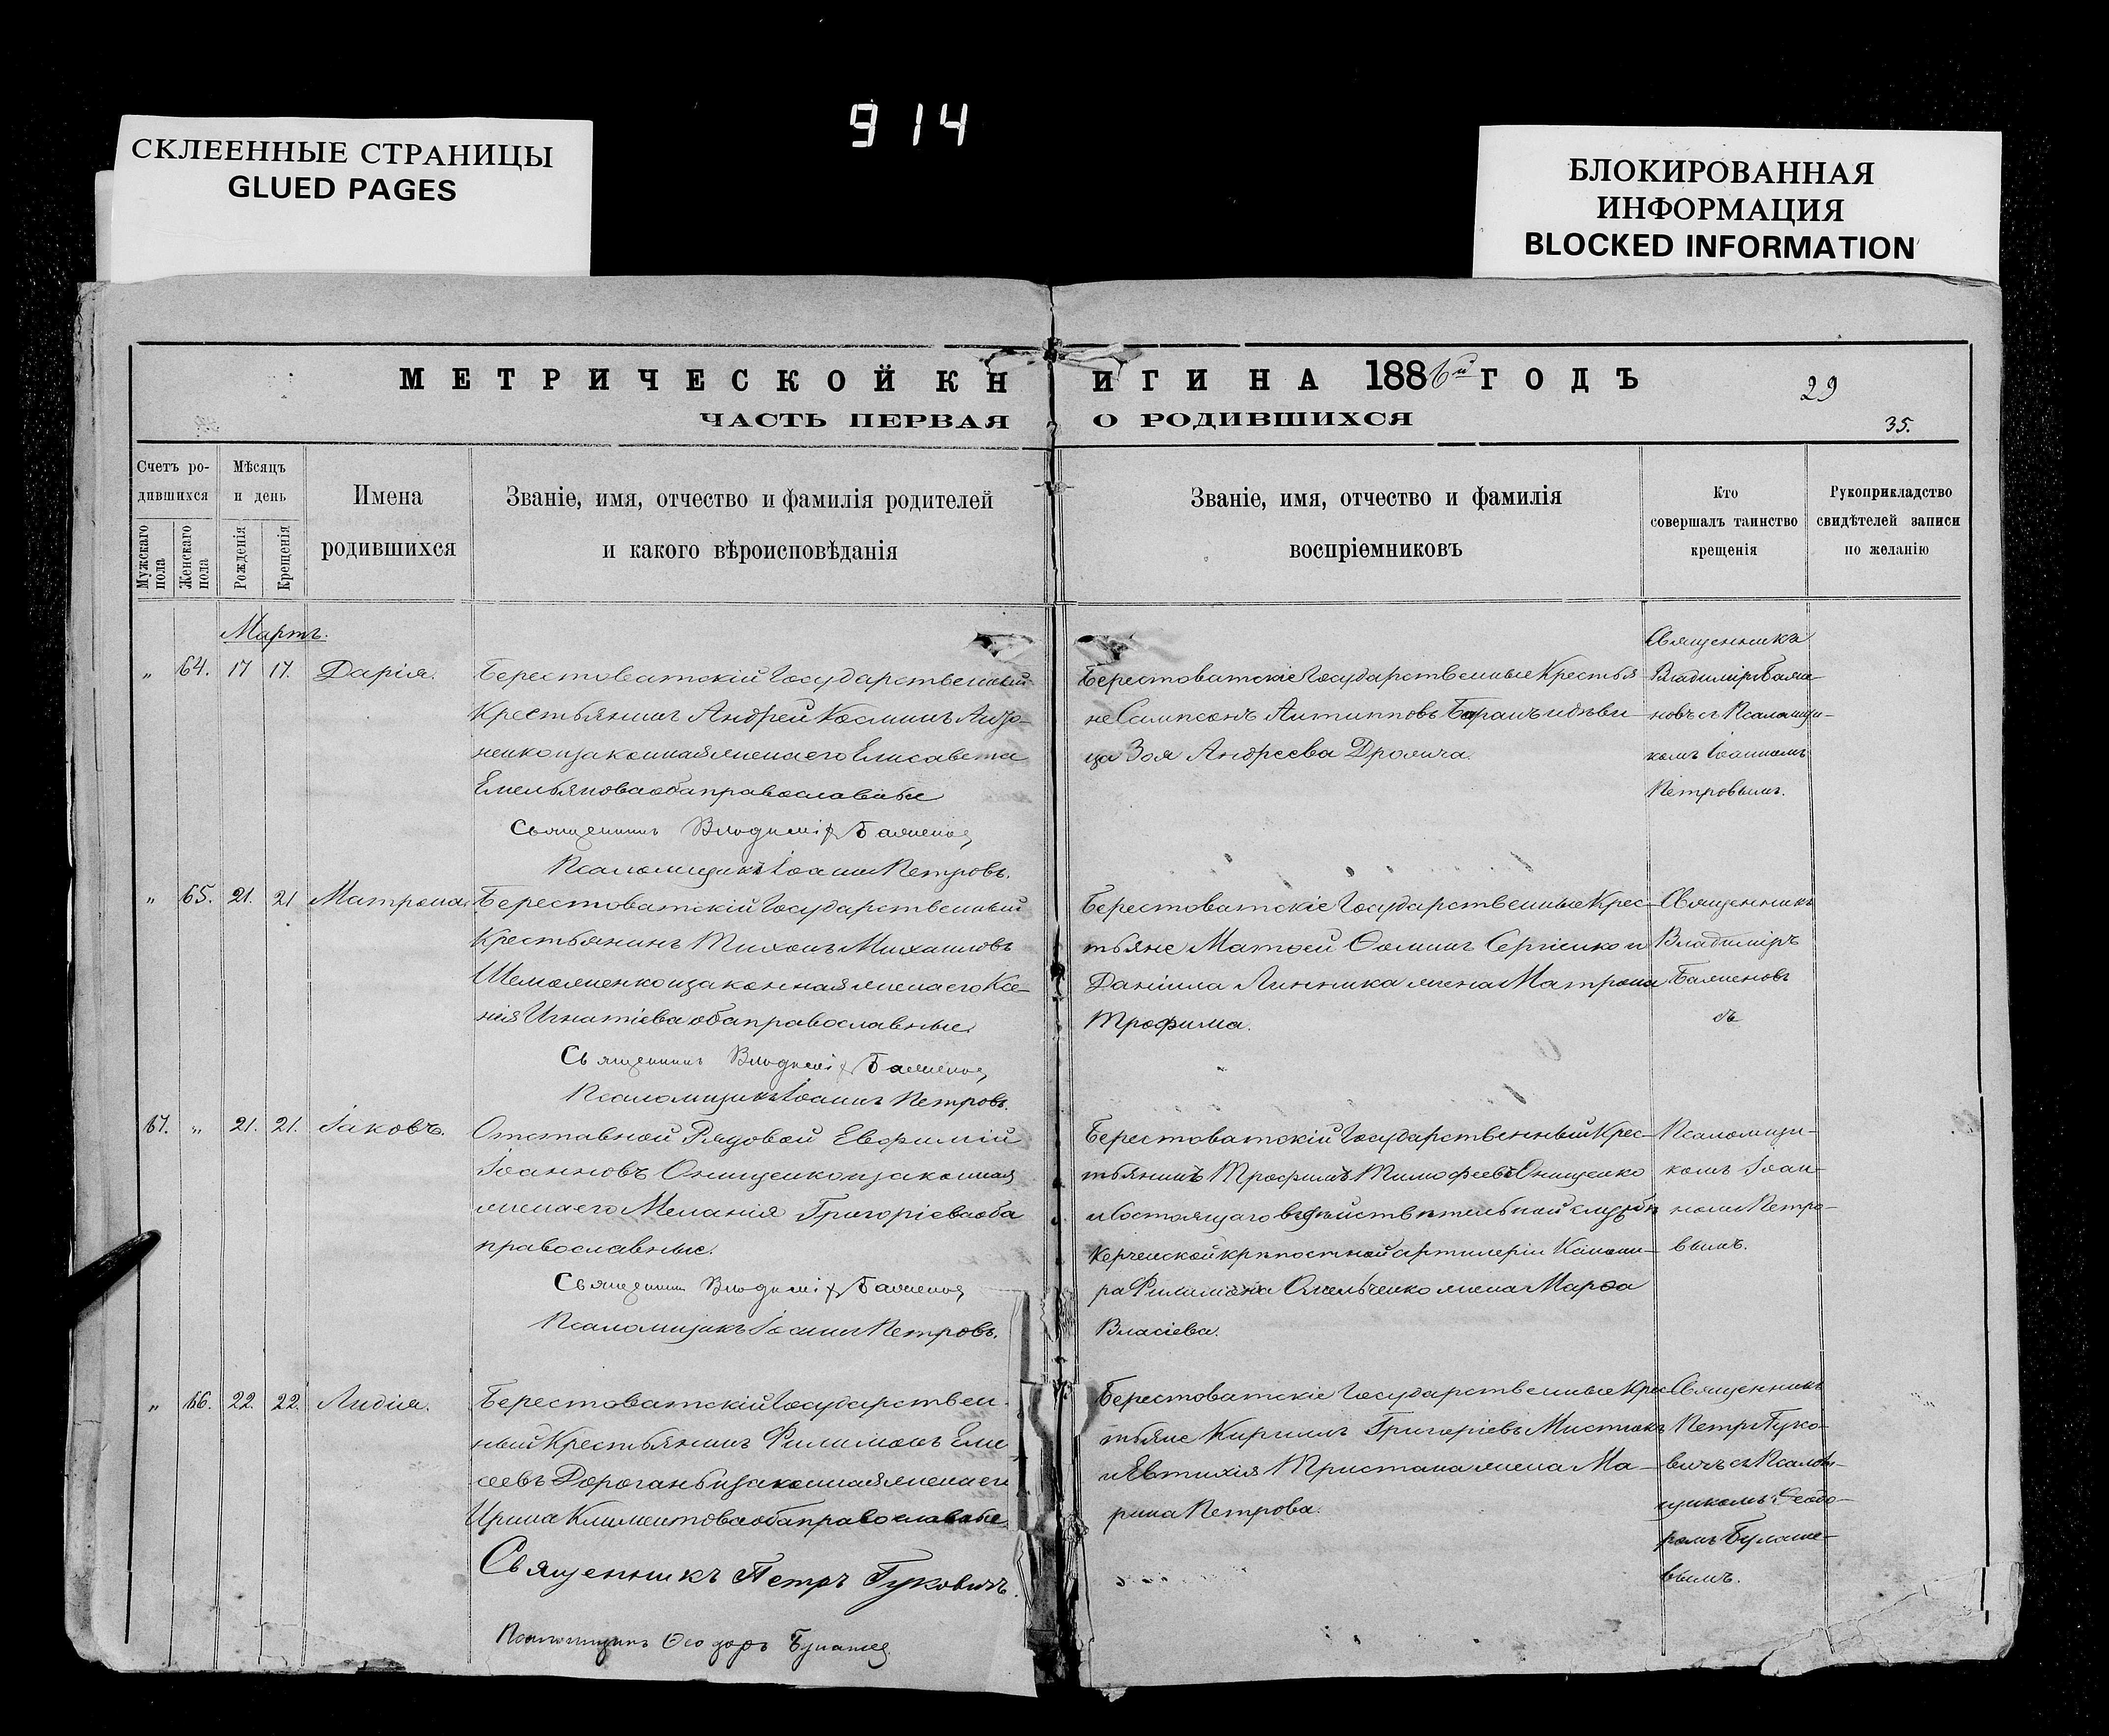 914
СКЛЕЕННЫЕ СТРАНИЦЫ
GLUED PAGES
БЛОКИРОВАННАЯ
ИНФОРМАЦИЯ
BLOCKED INFORMATION
МЕТРИЧЕСКОЙ КНИГИ НА 1886й ГОДЪ
29
ЧАСТЬ ПЕРВАЯ О РОДИВШИХСЯ
35.
Счетъ ро-
дившихся
Мужскаго пола
Женскаго пола
Мѣсяцъ
и день
Рожденія
Крещенія
Имена
родившихся
Званіе, имя, отчество и фамилія родителей
и какого вѣроисповѣданія
Званіе, имя, отчество и фамилія
воспріемниковъ
Кто
совершалъ таинство
крещенія
Рукоприкладство
свидѣтелей записи
по желанію
Мартъ.
„ 64. 17 17. Дарія.
Берестоватскій Государственный
Крестьянинъ Андрей Косминъ
и законная жена его Елисавета
Емельянова оба православные
Священникъ Владиміръ Баженов
Псаломщикъ Іоаннъ Петровъ.
Берестоватскіе Государственные Крестья
не Сампсонъ Антиповъ Баранъ и дѣви
ца Зоя Андреева
Священникъ
Владиміръ Баже-
новъ съ Псаломщи-
комъ Іоанномъ
Петровымъ.
„ 65. 21. 21 Матрона.
Берестоватскій Государственный
Крестьянинъ Тихонъ Михаиловъ
Шеможенко и законная жена его Ксе-
нія Игнатіева оба православные.
Священникъ Владиміръ Баженов
Псаломщикъ Іоаннъ Петровъ.
Берестоватскіе Государственные Крес-
тьяне Матѳей Ѳоминъ Сергіенко и
Даніила Линника жена Матрона
Трофима.
Священникъ
Владиміръ
Баженовъ
съ
67. „ 21. 21. Іаковъ.
Отставной Рядовой Евфимій
Іоанновъ Онищенко и законная
жена его Меланія Григоріева оба
православные.
Священникъ Владиміръ Баженов
Псаломщикъ Іоаннъ Петровъ.
Берестоватскій Государственный Крес-
тьянинъ Трофимъ Тимофеевъ Онищенко
и Состоящаго въ дѣйствительной службѣ
Керченской крѣпостной артилеріи Канони-
ра Филимона Омельченко жена Марѳа
Власіева.
Псаломщи-
комъ Іоан-
номъ Петро-
вымъ.
„ 66. 22. 22. Лидія.
Берестоватскій Государствен-
ный Крестьянинъ Филимонъ Ели
сеевъ Дорогань и законная жена его
Ирина Климентова оба православные
Священникъ Петръ Гуковичъ.
Псаломщикъ Ѳеодоръ Булашев
Берестоватскіе Государственные Крес
тьяне Кирилъ Григоріевъ Мистюкъ
и Евтихія Пристапа жена Ма-
рина Петрова.
Священникъ
Петръ Гуко-
вичъ съ Псалом-
щикомъ Ѳеодо-
ромъ Булаше-
вымъ.